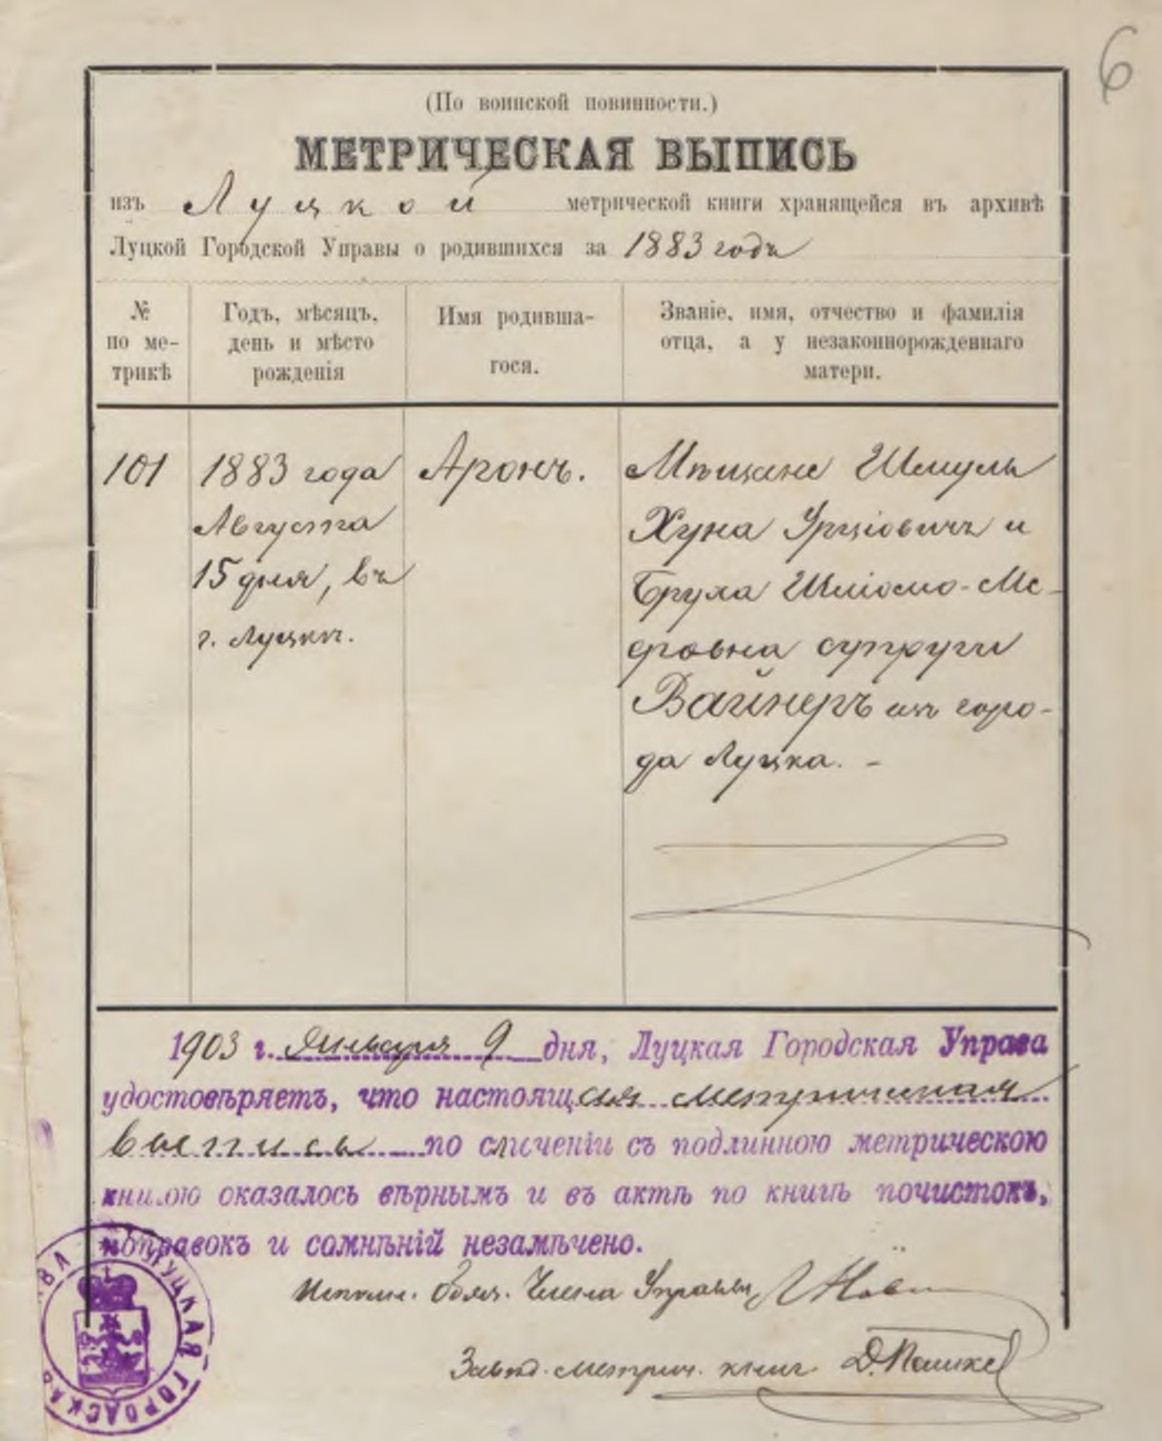 6
(По воинской повинности.)
МЕТРИЧЕСКАЯ ВЫПИСЬ
изъ Луцкой метрической книги хранящейся въ архивѣ
Луцкой Городской Управы о родившихся за 1883 годъ
№ по ме- трикѣ
Годъ, мѣсяцъ, день и мѣсто рожденія
Имя родивша- гося.
Званіе, имя, отчество и фамилія отца, а у незаконнорожденнаго матери.
101
1883 года
Августа
15 дня, въ
г. Луцкѣ.
Аронъ.
Мѣщане Шмуль
Хуна Урціовичъ и
Бруха Шліомо-Ме-
ровна супруги
Вайнеръ изъ горо-
да Луцка. -
1903 г. Января 9 дня, Луцкая Городская Управа
удостовѣряетъ, что настоящая метрическая
выпись по сличеніи съ подлинною метрическою
книгою оказалось вѣрнымъ и въ актѣ по книгѣ почистокъ,
поправокъ и сомнѣній незамѣчено.
Исполн. обяз. Члена Управы
Завѣд. метрич. книг. Д. Пашке
ЛУЦКАЯ ГОРОДСКАЯ